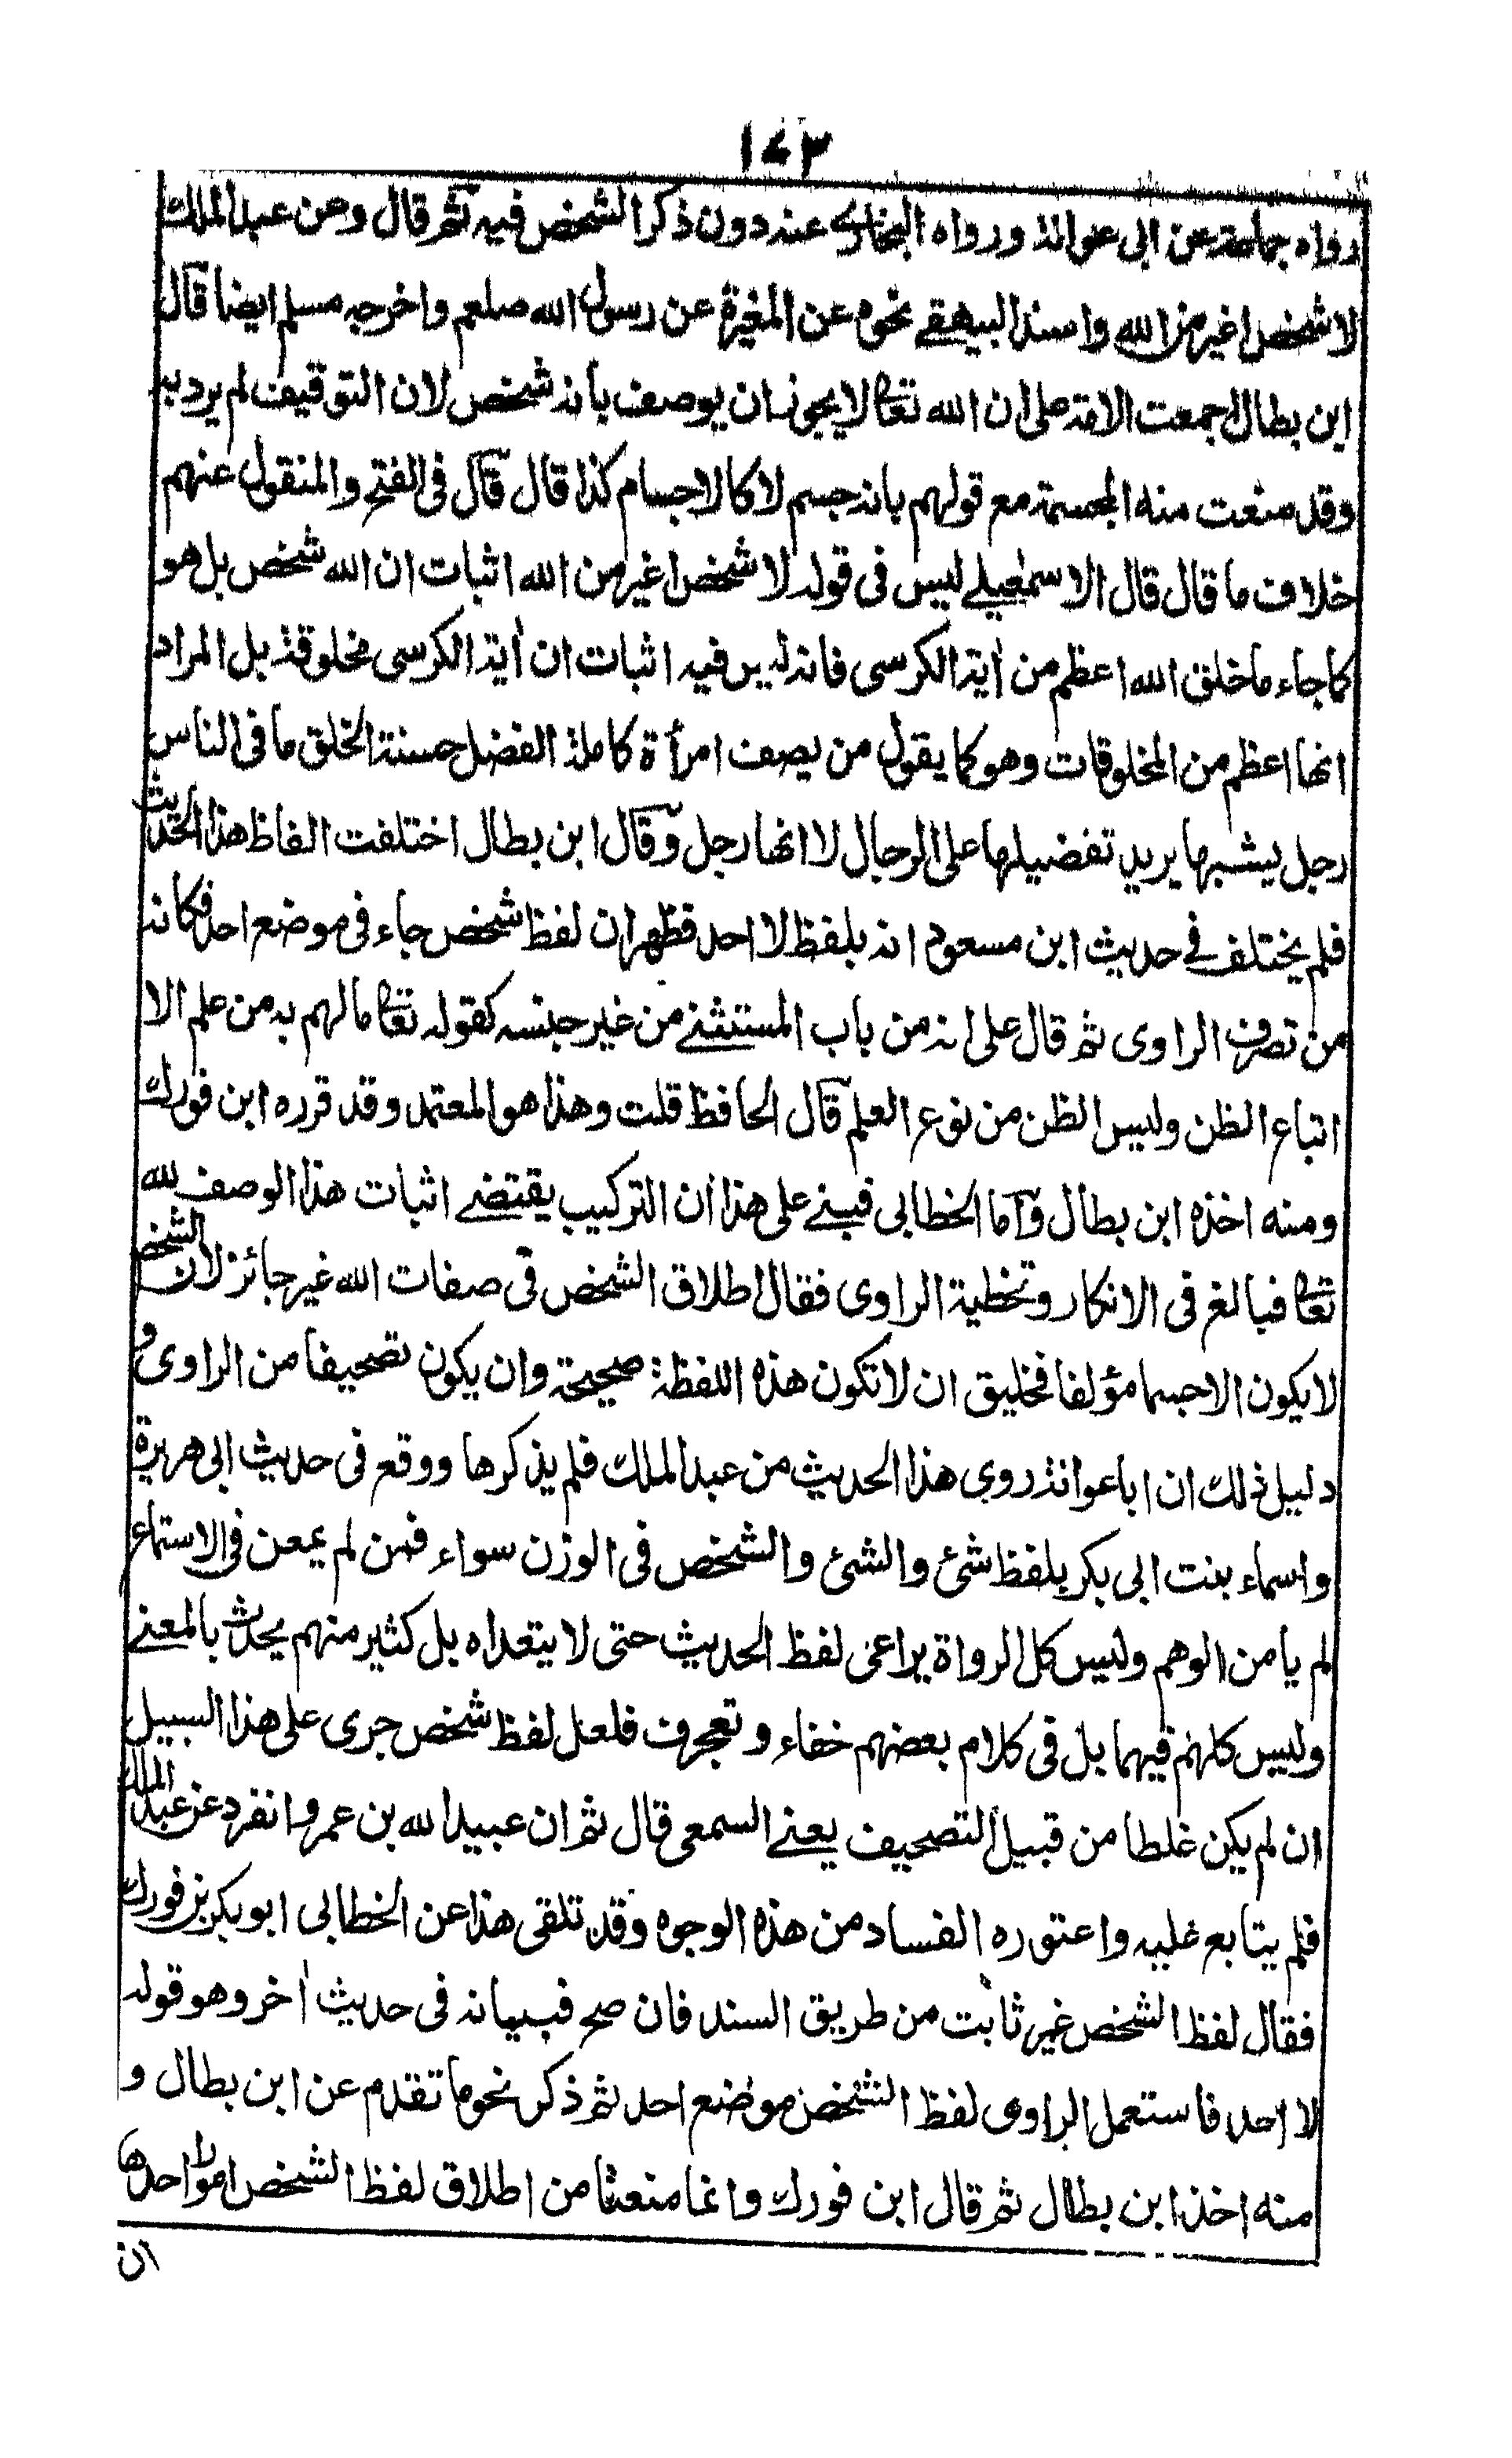 ١٧٣
رواه جماعة عن ابى عوانة ورواه البخارى عنه دون ذكر الشخص فيه ثم قال وعن عبد الملك
لا شخص اغير من الله واسند البيهقے نحوه عن المغيرة عن رسول الله صلعم واخرجه مسلم ايضا قال
ابن بطال اجمعت الامة على ان الله تعالى لا يجوز ان يوصف بانه شخص لان التوقيف لم يرد به
وقد منعت منه المجسمة مع قولهم بانه جسم لا كالاجسام كذا قال قال فى الفتح والمنقول عنهم
خلاف ما قال قال الاسمعيلے ليس فى قوله لا شخص اغير من الله اثبات ان الله شخص بل هو
كما جاء ما خلق الله اعظم من اٰية الكرسى فانه ليس فيه اثبات ان اٰية الكرسى مخلوقة بل المراد
انها اعظم من المخلوقات وهو كما يقول من يصف امرأة كاملة الفضل حسنة الخلق ما فى الناس
رجل يشبهها يريد تفضيلها على الرجال لا انها رجل وقال ابن بطال اختلفت الفاظ هذا الحديث
فلم يختلف فے حديث ابن مسعود انه بلفظ لا احد فظهر ان لفظ شخص جاء فى موضع احد فكانه
من تصرف الراوى ثم قال على انه من باب المستثنے من غير جنسه كقوله تعالى ما لهم به من علم الا
اتباع الظن وليس الظن من نوع العلم قال الحافظ قلت وهذا هو المعتمد وقد قرره ابن فورك
ومنه اخذه ابن بطال واما الخطابى فبنے على هذا ان التركيب يقتضے اثبات هذا الوصف لله
تعالى فبالغ فى الانكار وتخطية الراوى فقال اطلاق الشخص فى صفات الله غير جائز لان الشخص
لا يكون الا جسما مؤلفا فخليق ان لا تكون هذه اللفظة صحيحة وان يكون تصحيفا من الراوى و
دليل ذلك ان ابا عوانة روى هذا الحديث من عبد الملك فلم يذكرها ووقع فى حديث ابى هريرة
واسماء بنت ابى بكر بلفظ شئ والشئ والشخص فى الوزن سواء فمن لم يمعن فى الاستماع
لم يامن الوهم وليس كل الرواة يراعى لفظ الحديث حتى لا يتعداه بل كثير منهم يحدث بالمعنے
وليس كلهم فيهما بل فى كلام بعضهم خفاء وتعجرف فلعل لفظ شخص جرى على هذا السبيل
ان لم يكن غلطا من قبيل التصحيف يعنے السمعى قال ثم ان عبيد الله بن عمرو انفرد عن عبد الملك
فلم يتابع عليه واعتوره الفساد من هذه الوجوه وقد تلقى هذا عن الخطابى ابو بكر بن فورك
فقال لفظ الشخص غير ثابت من طريق السند فان صح فبيانه فى حديث اٰخر وهو قوله
لا احد فاستعمل الراوى لفظ الشخص موضع احد ثم ذكر نحو ما تقدم عن ابن بطال و
منه اخذ ابن بطال ثم قال ابن فورك وانما منعنا من اطلاق لفظ الشخص امورا احدها
ان